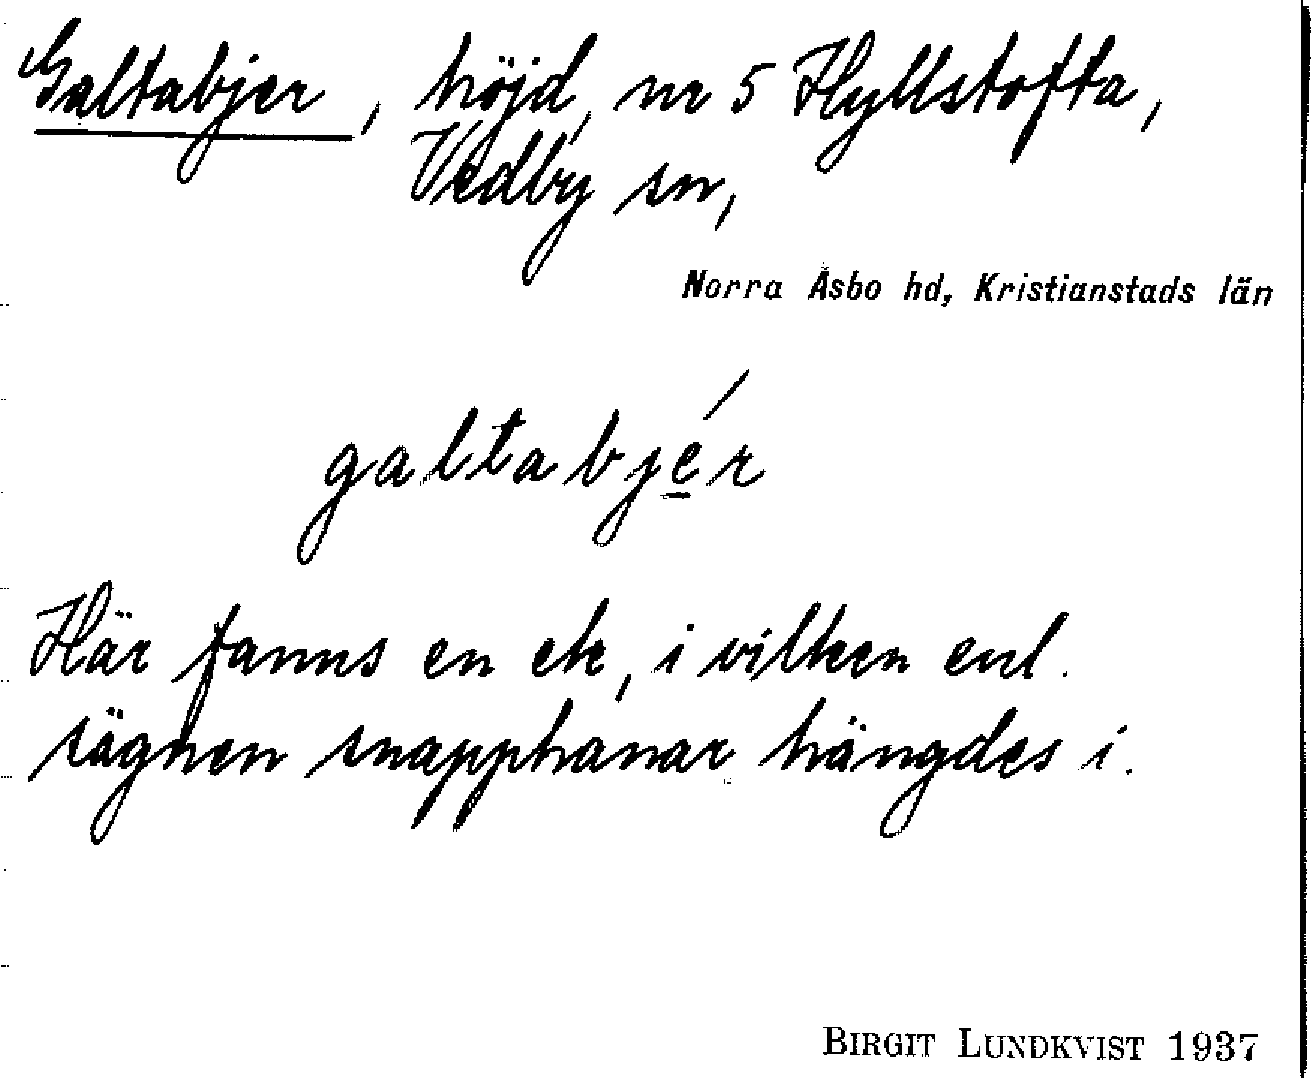 Galtabjer, höjd, nr 5 Hyllstofta,
Vedby sn,
Norra Åsbo hd, Kristianstads län
galtabjér
Här fanns en ek, i vilken enl.
sägnen snapphanar hängdes i.
BIRGIT LUNDKVIST 1937